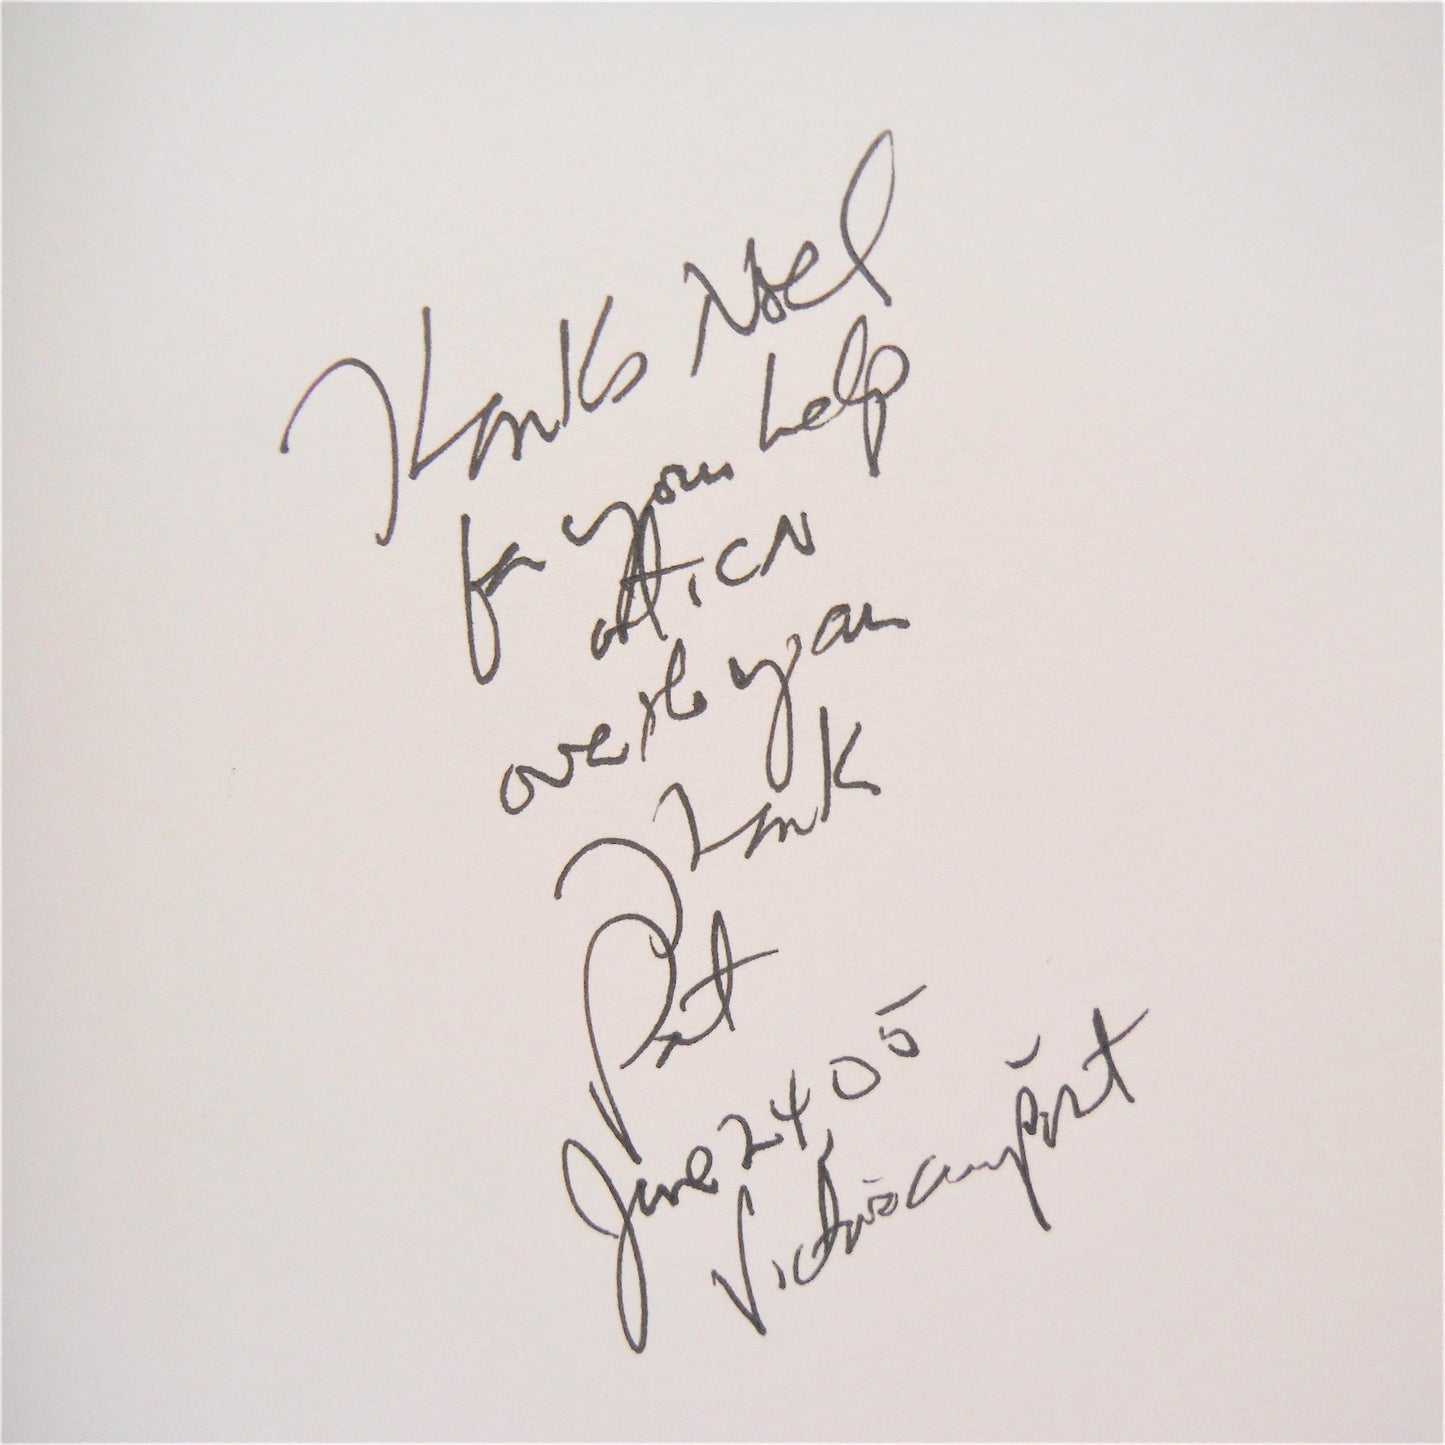 Thanks Noel
for your help
at ICN
over the years
Thank
Pat
June 24, 05
Victoria